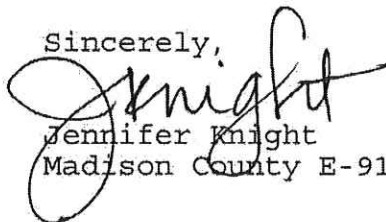 Sincerely,
JKnight
Jennifer Knight
Madison County E-91